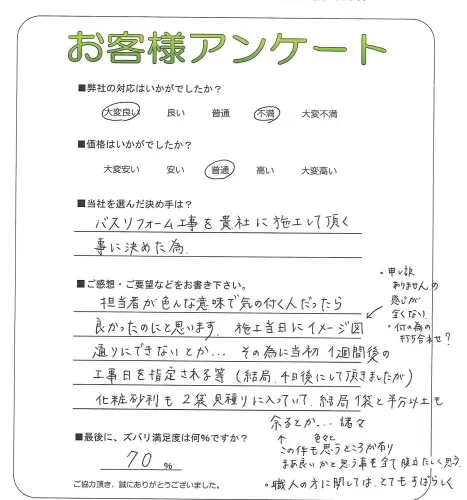 お客様アンケート
■弊社の対応はいかがでしたか？
大変良い 良い 普通 不満 大変不満
■価格はいかがでしたか？
大変安い 安い 普通 高い 大変高い
■当社を選んだ決め手は？
バスリフォーム工事を貴社に施工して頂く
事に決めた為.
■ご感想・ご要望などをお書き下さい。
担当者が色んな意味で気の付く人だったら
良かったのにと思います. 施工当日にイメージ図
通りにできないとか… その為に当初1週間後の
工事日を指定される等(結局、4日後にして頂きましたが)
化粧砂利も2袋見積りに入っていて、結局1袋と半分以上も
余るとか… 諸々
・申し訳
ありませんの
感じが
全くない
・何の為の
打ち合わせ？
↑ 色々と
この件も思うところが有り
まあ良いかと思う事も全て腹立たしく思う.
・職人の方に関しては、とてもすばらしく
■最後に、ズバリ満足度は何％ですか？
70 %
ご協力頂き、誠にありがとうございました。